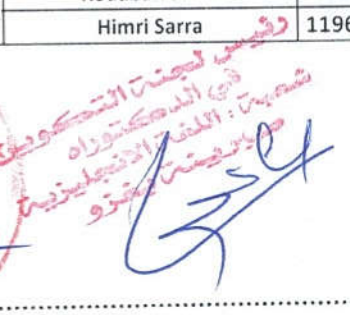 Himri Sarra 1196
رئيس لجنة التكوين
في الدكتوراه
شعبة : اللغة الانجليزية